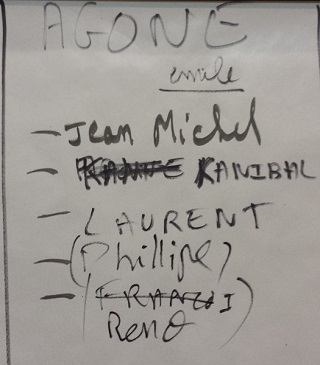 AGONE
emile
- Jean Michel
- KANIBAL
- LAURENT
- (Phillipe)
- (FRANZI)
Reno